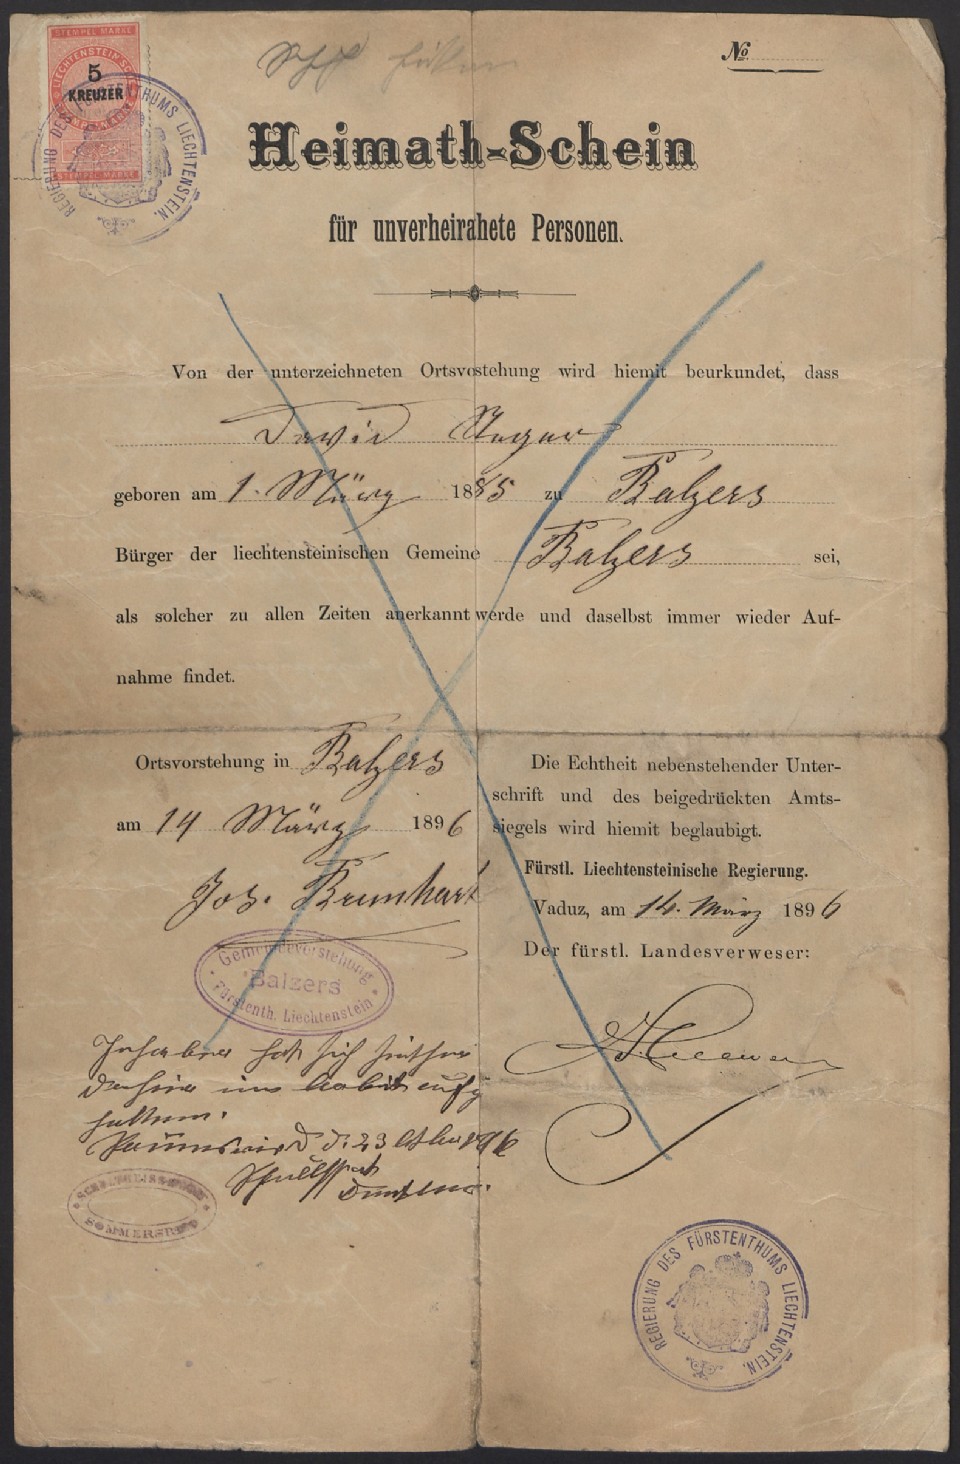 STEMPEL MARKE
LIECHTENSTEIN-SCHE
5
KREUZER
STEMPELMARKE
STEMPEL MARKE
REGIERUNG DES FÜRSTENTHUMS LIECHTENSTEIN.
No
Heimath-Schein
für unverheirahete Personen.
Von der unterzeichneten Ortsvostehung wird hiemit beurkundet, dass
David Steger
geboren am 1. März 1885 zu Balzers
Bürger der liechtensteinischen Gemeine Balzers sei,
als solcher zu allen Zeiten anerkannt werde und daselbst immer wieder Auf-
nahme findet.
Ortsvorstehung in Balzers
am 14 März 1896
Jos. Brunhart
Gemeindevorstehung
Balzers
Fürstenth. Liechtenstein
Die Echtheit nebenstehender Unter-
schrift und des beigedrückten Amts-
siegels wird hiemit beglaubigt.
Fürstl. Liechtensteinische Regierung.
Vaduz, am 14. März 1896
Der fürstl. Landesverweser:
Inhaber hat sich
in Arbeit aufge
halten.
d. 23
SOMMERSRIED
REGIERUNG DES FÜRSTENTHUMS LIECHTENSTEIN.